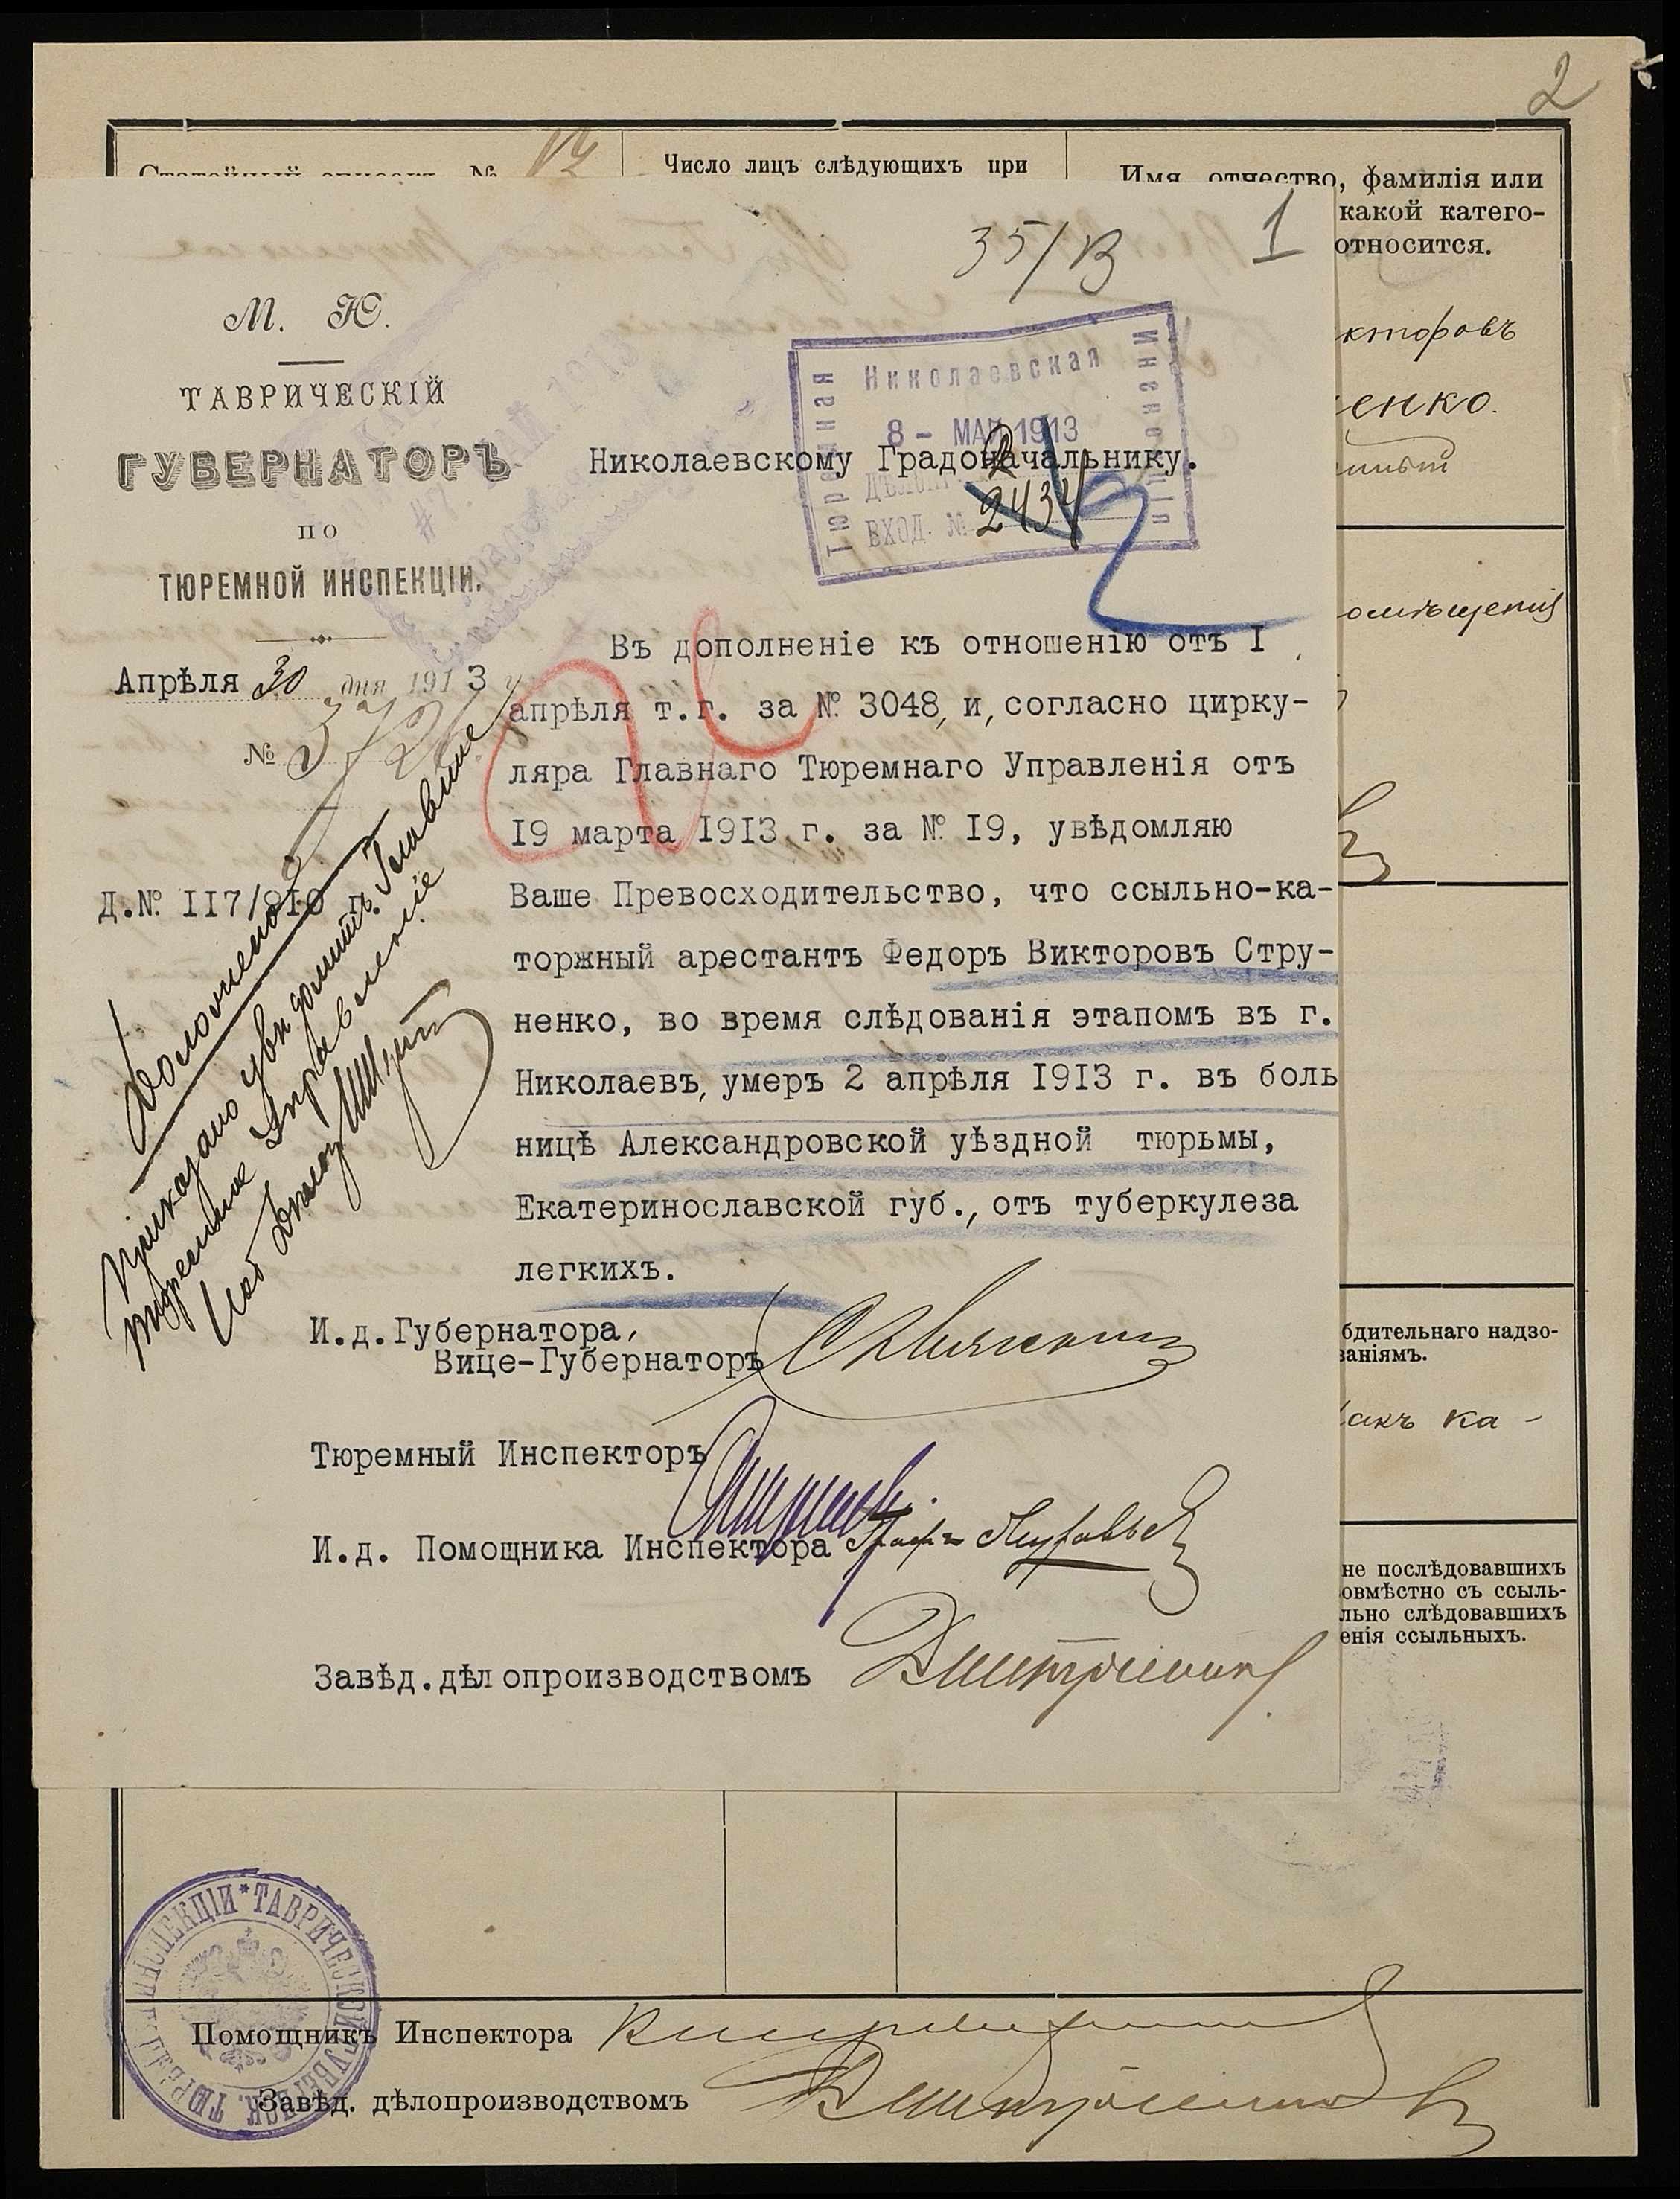 2
Статейный списокъ №
Число лицъ слѣдующихъ при
Имя, отчество, фамилія или
какой катего-
относится.
35/В
1
М. Ю.
ТАВРИЧЕСКІЙ
ГУБЕРНАТОРЪ
ПО
ТЮРЕМНОЙ ИНСПЕКЦІИ.
Апрѣля 30 дня 1913
№
Д.№ II7/910 г.
Николаевская
Тюремная
Инспекція
8 - МАЙ 1913
ВХОД. № 2434
Николаевскому Градоначальнику.
Въ дополненіе къ отношенію отъ I
апрѣля т.г. за № 3048, и, согласно цирку-
ляра Главнаго Тюремнаго Управленія отъ
I9 марта I9I3 г. за № I9, увѣдомляю
Ваше Превосходительство, что ссыльно-ка-
торжный арестантъ Федоръ Викторовъ Стру-
ненко, во время слѣдованія этапомъ въ г.
Николаевъ, умеръ 2 апрѣля I9I3 г. въ боль
ницѣ Александровской уѣздной тюрьмы,
Екатеринославской губ., отъ туберкулеза
легкихъ.
Доложено
Приказано увѣдомить Главное
тюремное Управленіе
И.д.Губернатора,
Вице-Губернаторъ
Тюремный Инспекторъ
И.д. Помощника Инспектора
Завѣд.дѣлопроизводствомъ
кторовъ
енко.
омѣщенія
бдительнаго надзо-
ваніямъ.
какъ ка-
не послѣдовавшихъ
овмѣстно съ ссыль-
льно слѣдовавшихъ
енія ссыльныхъ.
ИНСПЕКЦІИ * ТАВРИЧЕСКОЙ ГУБЕРНСК. ТЮРЕМ
Помощникъ Инспектора
Завѣд. дѣлопроизводствомъ